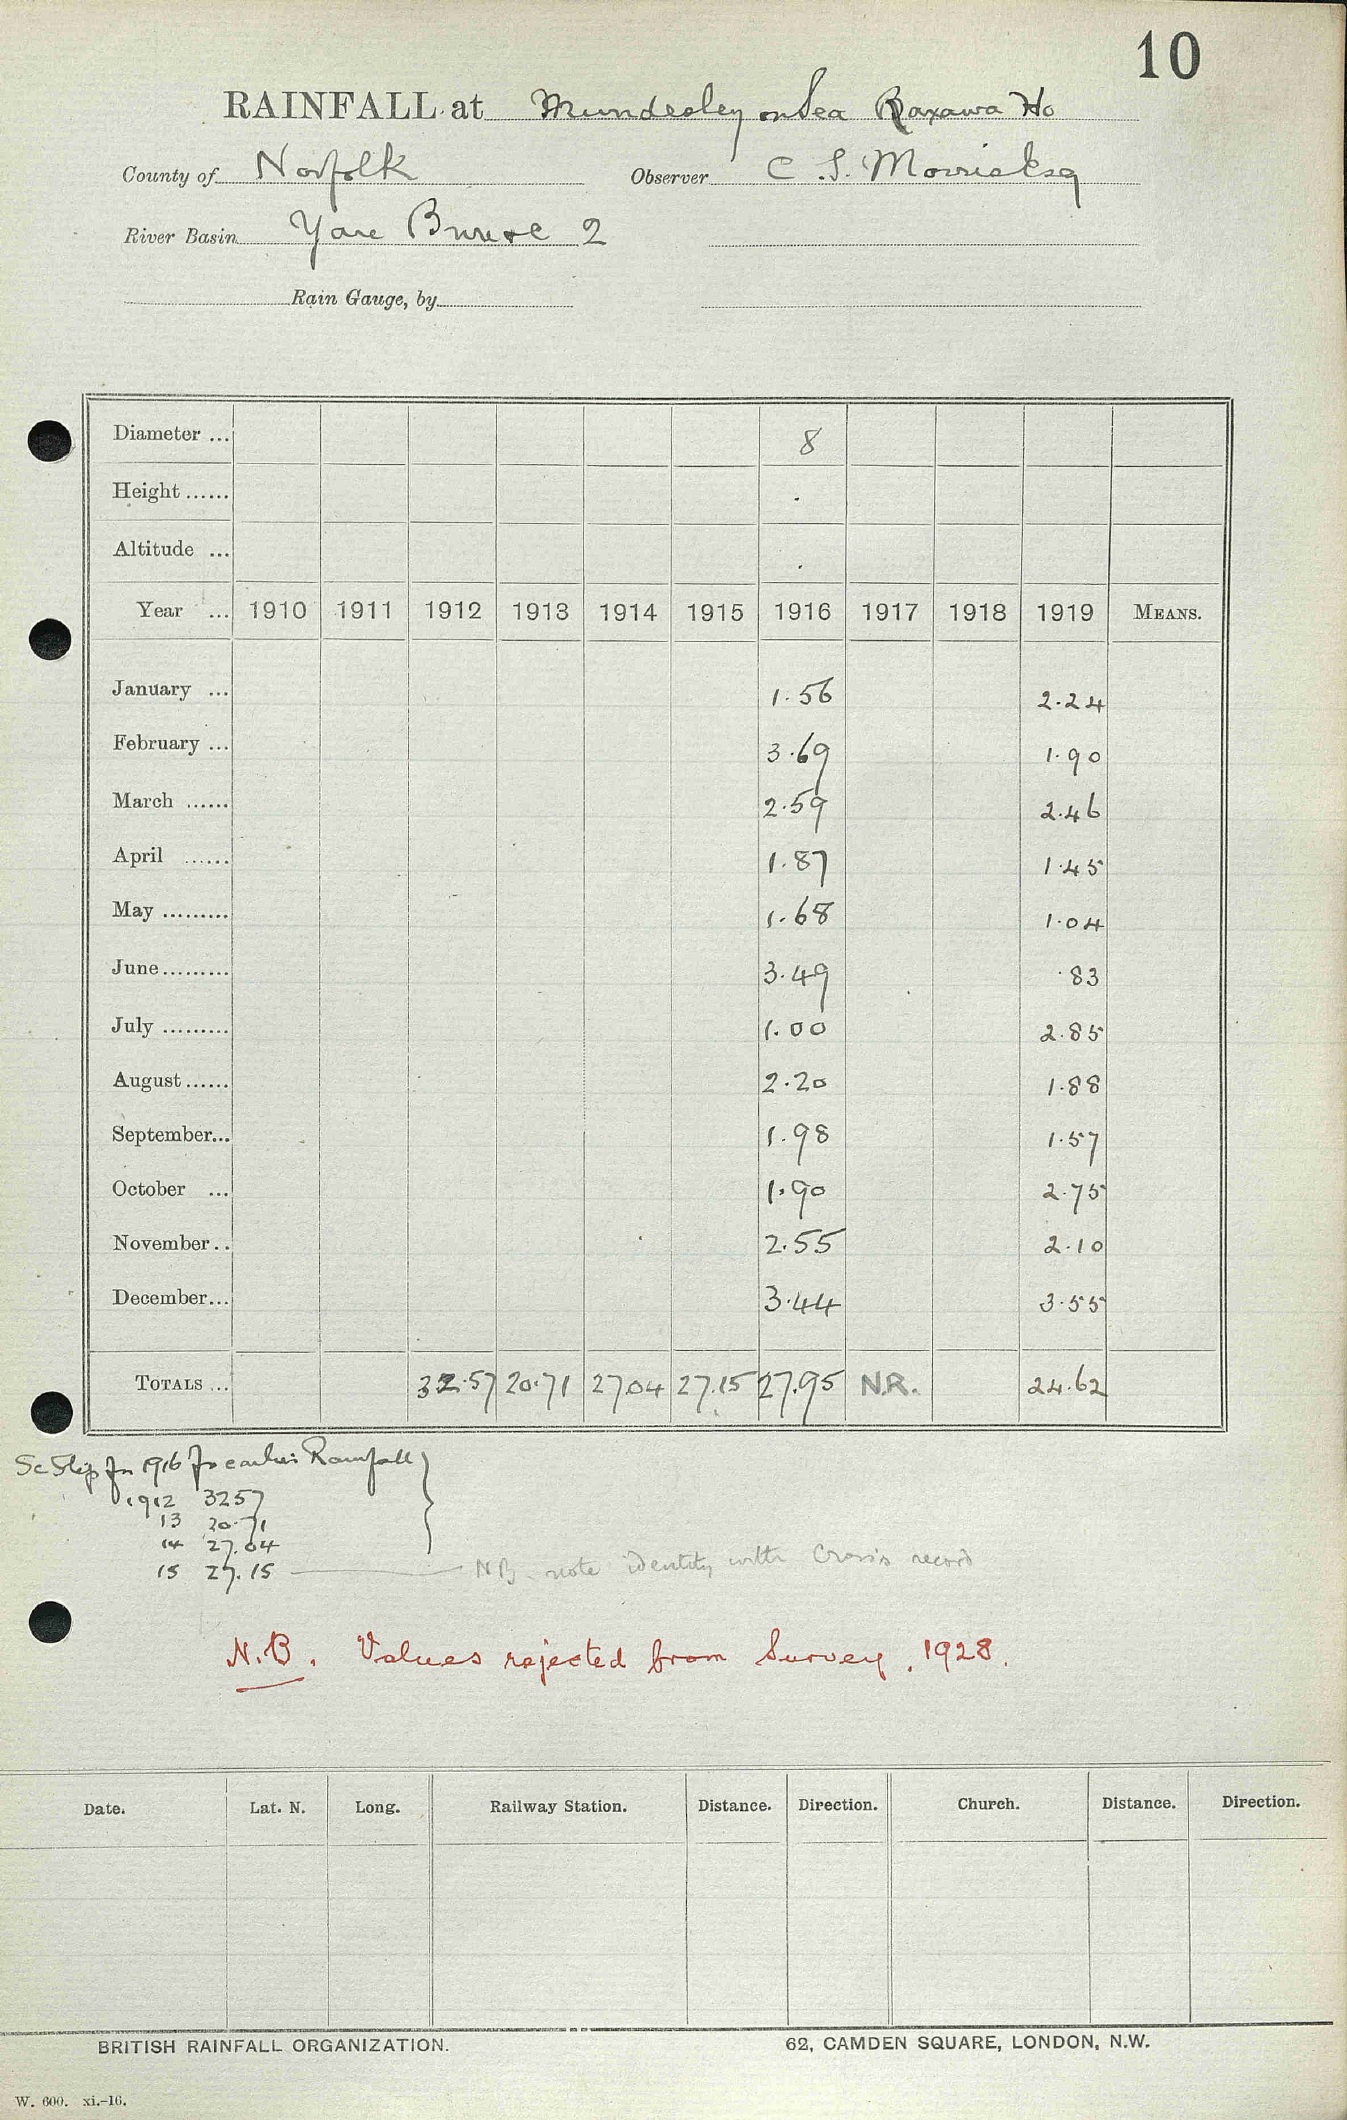 10
RAINFALL at Mundesley on Sea Raxawa Ho
County of Norfolk Observer C. S. Morris Esq
River Basin Yare Bure &c 2
Rain Gauge, by
Diameter ... 8
Height ...... .
Altitude ... .
Year ... 1910 1911 1912 1913 1914 1915 1916 1917 1918 1919 MEANS.
January ... 1.56 2.24
February ... 3.69 1.90
March ...... 2.59 2.46
April ...... 1.87 1.45
May ......... 1.68 1.04
June ......... 3.49 .83
July ......... 1.00 2.85
August ...... 2.20 1.88
September... 1.98 1.57
October ... 1.90 2.75
November.. 2.55 2.10
December... 3.44 3.55
TOTALS ... 32.57 20.71 27.04 27.15 27.95 N.R. 24.62
See Slip for 1916 for earlier Rainfall
1912 3257
13 20.71
14 27.04
15 27.15 NB note identity with Cross's record
N.B. Values rejected from Survey, 1928.
Date. Lat. N. Long. Railway Station. Distance. Direction. Church. Distance. Direction.
BRITISH RAINFALL ORGANIZATION. 62, CAMDEN SQUARE, LONDON, N.W.
W. 600. xi.-16.